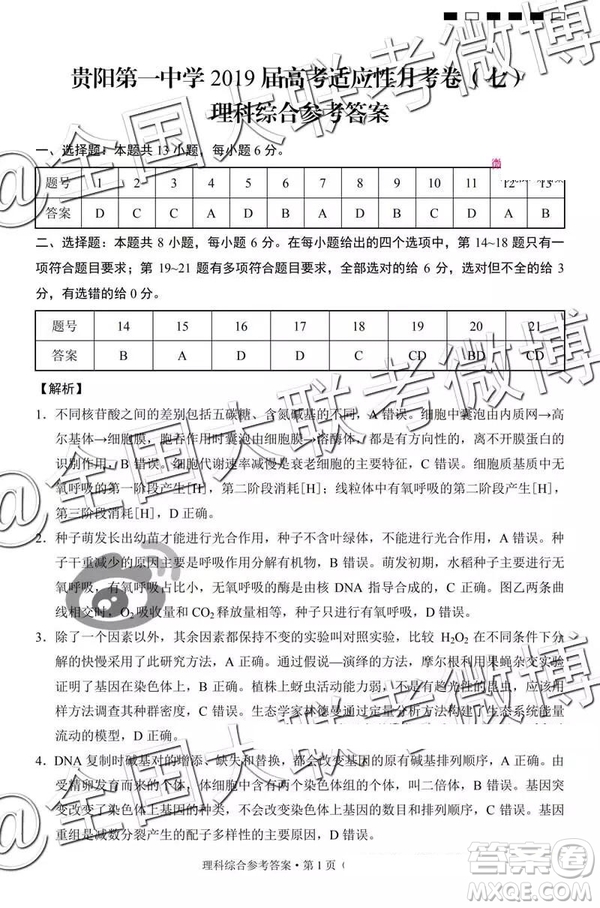 贵阳第一中学 2019 届高考适应性月考卷（七）
理科综合参考答案
一、选择题：本题共 13 小题，每小题 6 分。
题号 1 2 3 4 5 6 7 8 9 10 11 12 13
答案 D C C A D B A D B C D A B
二、选择题：本题共 8 小题，每小题 6 分。在每小题给出的四个选项中，第 14~18 题只有一
项符合题目要求；第 19~21 题有多项符合题目要求，全部选对的给 6 分，选对但不全的给 3
分，有选错的给 0 分。
题号 14 15 16 17 18 19 20 21
答案 B A D CD BD CD
【解析】
1. 不同核苷酸之间的差别包括五碳糖、含氮碱基的不同，A 错误。细胞中囊泡由内质网→高
尔基体→细胞膜，胞吞作用时囊泡由细胞膜→溶酶体，都是有方向性的，离不开膜蛋白的
识别作用，B 错误。细胞代谢速率减慢是衰老细胞的主要特征，C 错误。细胞质基质中无
氧呼吸的第一阶段产生[H]，第二阶段消耗[H]；线粒体中有氧呼吸的第一、二阶段产生[H]，
第三阶段消耗[H]，D 正确。
2. 种子萌发长出幼苗才能进行光合作用，种子不含叶绿体，不能进行光合作用，A 错误。种
子干重减少的原因主要是呼吸作用分解有机物，B 错误。萌发初期，水稻种子中既有无
氧呼吸，有氧呼吸占大多数，无氧呼吸的酶是由核 DNA 指导合成的，C 正确。图乙两条曲
线相交时，O₂吸收量与 CO₂释放量相等，种子只进行有氧呼吸，D 错误。
3. 除了一个因素以外，其余因素都保持不变的实验叫对照实验，比较 H₂O₂在不同条件下分
解的快慢采用了此研究方法，A 正确。通过假说—演绎的方法，摩尔根利用果蝇杂交实验
证明了基因在染色体上，B 正确。植株上蚜虫活动能力弱，活动范围小，是个体较小的，应该用
样方法调查种群密度，C 错误。生态学家林德曼通过定量分析方法构建了生态系统能量
流动的模型，D 正确。
4. DNA 复制时碱基对的增添、缺失和替换，都会改变原有碱基排列顺序，A 正确。由
受精卵发育而来的个体，体细胞中含有两个染色体组的个体，叫二倍体，B 错误。基因突
变改变了染色体上基因的种类，不会改变染色体上基因的数目和排列顺序，C 错误。基因
重组是减数分裂产生的配子多样性的主要原因，D 错误。
理科综合参考答案·第 1 页（
@全国大联考微博
答案卷